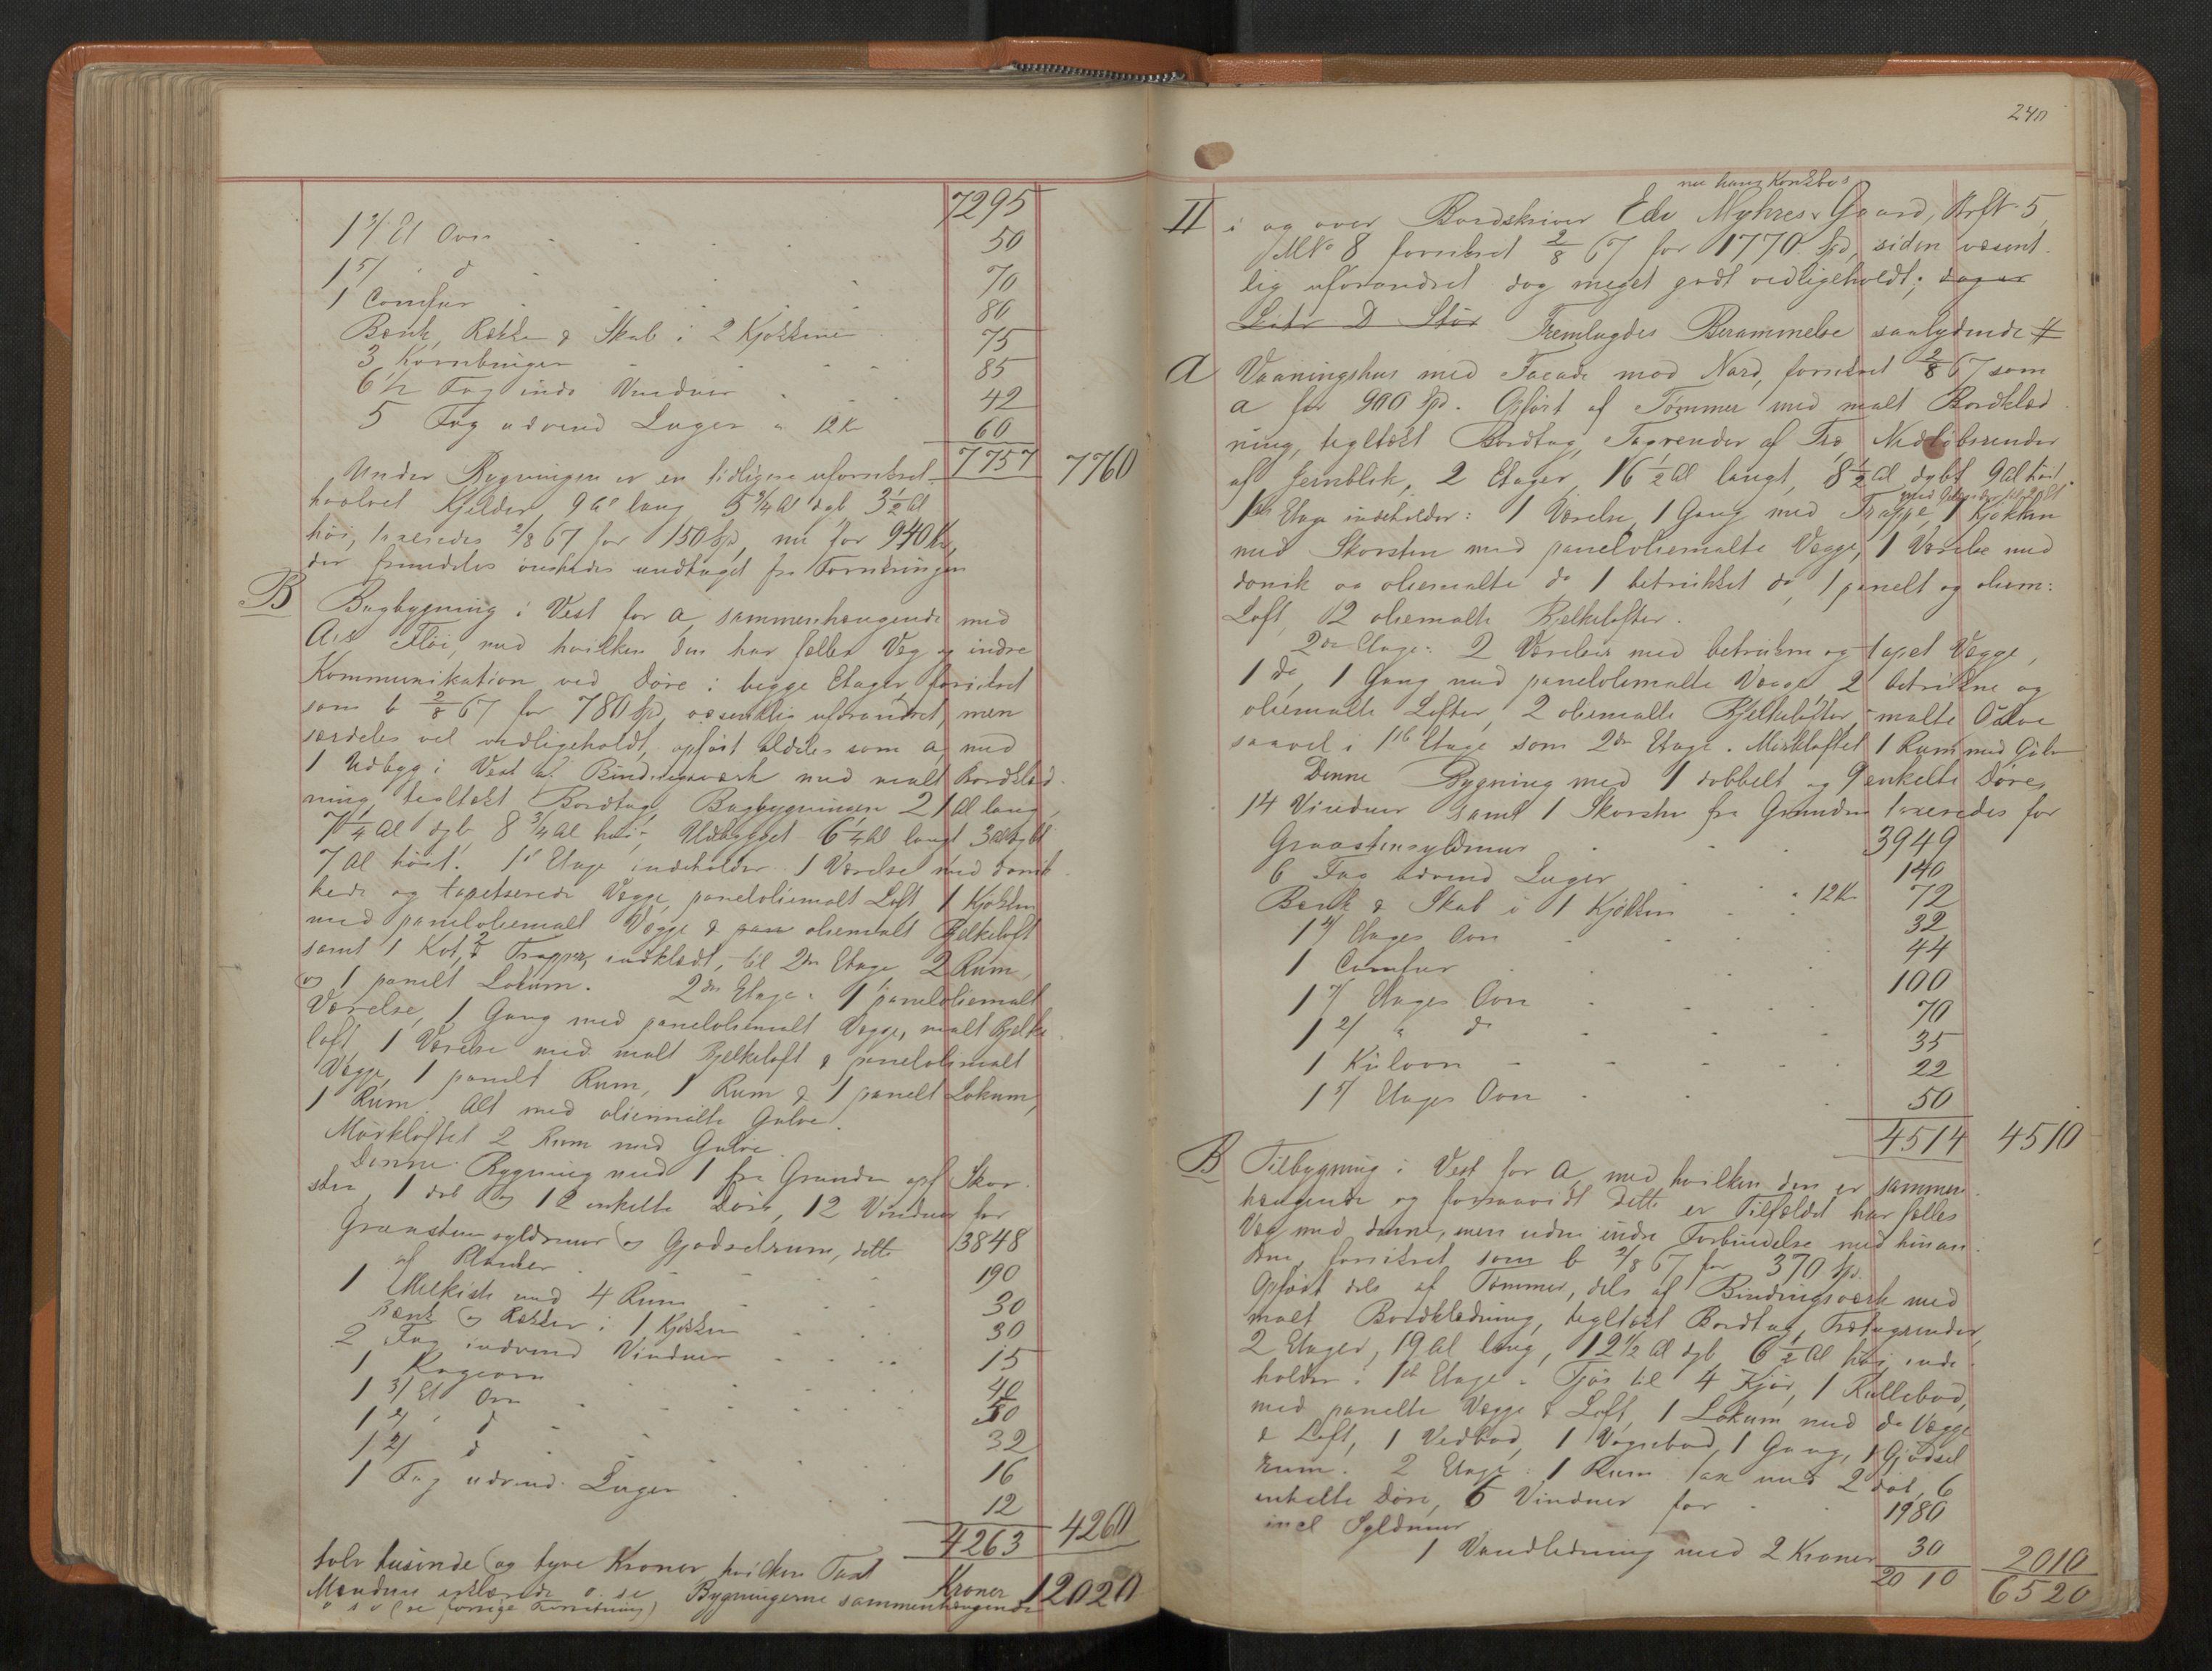 7295
1 3/ Et Ovn 50
1 5/ " d 70
1 Comfur 80
Bænk, Rækker & Skab i 2 Kjøkkener 75
3 Kornbinger 85
6 1/2 Fag indv Vinduer 42
5 Fag udvend Luger a 12 Kr 60
7757 7760
Under Bygningen er en tidligere uforsikret
hvælvet Kjelder, 9 Al lang 5 3/4 Al dyb 3 1/2 Al
høi, taxeredes 2/8 67 for 150 Spd, nu for 940 Kr,
der fremdeles ønskedes undtaget fra Forsikringen
B Bagbygning i Vest for A, sammenhængende med
A's Fløi, med hvilken den har fælles Væg og indre
Kommunikation ved Døre i begge Etager, forsikret
som b 2/8 67 for 780 Spd, væsentlig uforandret, men
særdeles vel vedligeholdt, opført aldeles som a, med
1 Udbyg i Vest af Bindingsværk med malt Bordklæd-
ning, tegltækt Bordtag, Bagbygningen 21 Al lang,
7 1/4 Al dyb, 8 3/4 Al høi. Udbygget 6 1/4 Al langt 3 Al dybt
7 Al høit. 1ste Etage indeholder 1 Værelse med donik
kede og tapetserede Vægge, paneloliemalt Loft, 1 Kjøkken
med paneloliemalt Vægge & pan oliemalt Bjelkeloft
samt 1 Kot, 2 Trapper, indklædt, til 2den Etage, 2 Rum,
og 1 panelt Lokum. 2den Etage: 1 paneloliemalt
Værelse, 1 Gang med paneloliemalt Vægge, malt Bjelke
loft, 1 Værelse med malt Bjelkeloft & paneloliemalt
Vægge, 1 panelt Rum, 1 Rum & 1 panelt Lokum,
1 Rum. Alt med oliemalte Gulve.
Mørkloftet 2 Rum med Gulve.
Denne Bygning med 1 fra Grunden opf Skor-
sten, 1 dob og 12 enkelte Døre, 12 Vinduer for
Graastensyldmur og Gjødselrum, dette 3848
af Planker 190
1 Melkiste med 4 Rum 30
Bænk og Rækker i 1 Kjøkken 30
2 Fag indvend Vinduer 15
1 Bagerovn 40
1 3/ Et Ovn 50
1 2/ " d 32
1 2/ d 16
1 Fag udvend Luger 12
4263 4260
tolv tusinde og tyve Kroner hvilken Taxt Kroner 12020
Mændene erklærede o. s. v. Bygningerne sammenhængende
o s v (se forrige Forretning)
240
nu hans Konkbos
II i og over Bordskriver Edv Myhres Gaard, Strft 5,
M No 8 forsikret 2/8 67 for 1770 Spd, siden væsent-
lig uforandret dog meget godt vedligeholdt; dog er
Litr D Stør Fremlagdes Berammelse saalydende #
A Vaaningshus med Facade mod Nord, forsikret 2/8 67 som
a for 900 Spd. Opført af Tømmer med malt Bordklæd
ning, tegltækt Bordtag, Tagrender af Træ, Nedløbsrender
af Jernblik, 2 Etager, 16 1/2 Al langt, 8 1/2 Al dybt 9 Al høit.
1ste Etage indeholder: 1 Værelse, 1 Gang med Trappe, 1 Kjøkken
med Skorsten med paneloliemalte Vægge, 1 Værelse med
donik og oliemalte do 1 betrukket do, 1 panelt og oliem:
Loft, 2 oliemalte Bjelkelofter.
2den Etage: 2 Værelser med betrukne og tapet Vægge,
1 do, 1 Gang med paneloliemalte Vægge, 2 betrukne og
oliemalte Lofter, 2 oliemalte Bjelkelofter, malte Gulve
saavel i 1ste Etage som 2den Etage. Mørkloftet 1 Rum med Gulv
Denne Bygning med 1 dobbelt og 9 enkelte Døre,
14 Vinduer samt 1 Skorsten fra Grunden taxeredes for
3949
Graastensyldmur 140
6 Fag udvend Luger a 12 Kr 72
Bænk & Skab i 1 Kjøkken 32
1 2/ Etages Ovn 44
1 Comfur 100
1 3/ Etages Ovn 70
1 2/ " do 35
1 Kulovn 22
1 3/ Etages Ovn 50
4514 4510
B Tilbygning i Vest for A, med hvilken den er sammen-
hængende og forsaavidt dette er Tilfældet har fælles
Væg med denne, men uden indre Forbindelse med hinan-
den, forsikret som b 2/8 67 for 370 Spd.
Opført dels af Tømmer, dels af Bindingsværk med
malt Bordklædning, tegltækt Bordtag, Trætagrender,
2 Etager, 19 Al lang, 12 1/2 Al dyb 6 1/2 Al høi, inde
holder: 1ste Etage: Fjøs til 4 Kjør, 1 Rullebod,
med panelte Vægge & Loft, 1 Lokum med do Vægge
& Loft, 1 Vedbod, 1 Vognbod, 1 Gang, 1 Gjødsel
rum. 2 Etage: 1 Rum. Tax med 2 dob, 6
enkelte Døre, 6 Vinduer for 1980
incl Syldmur
1 Vandledning med 2 Kraner 30
2010 2010
6520